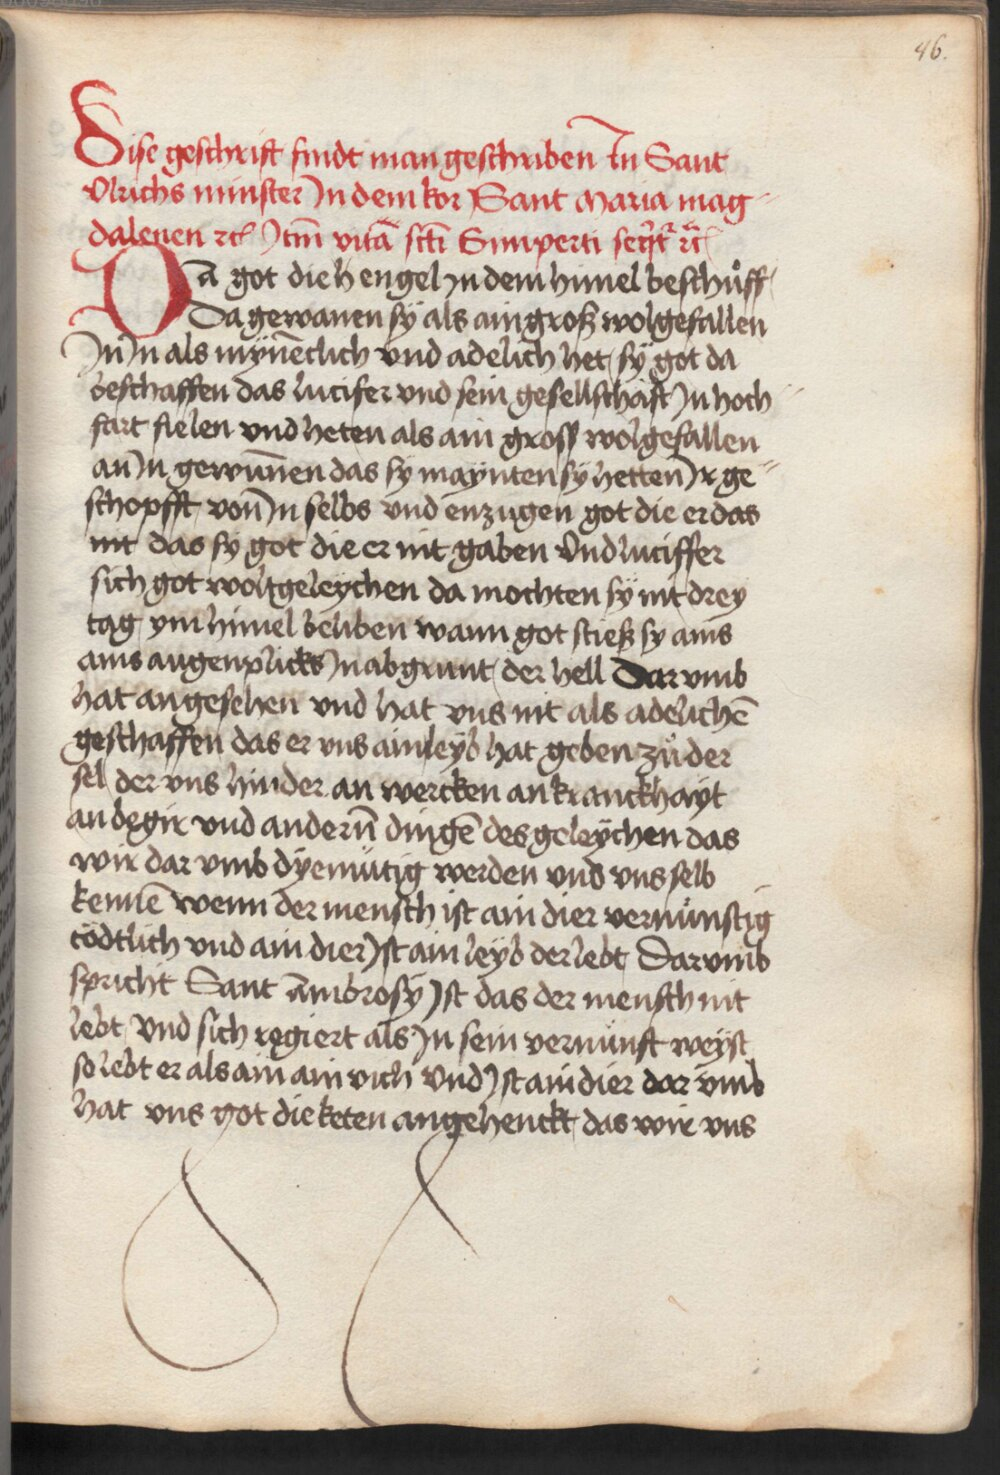 46.
Dise geschrift findt man geschriben In Sant
Ulrichs minster In dem kor Sant Maria mag
dalenen ꝛc Itm̄ vitā scti Simperti
DA got die h engel In dem himel beschůff
Da gewanen sÿ als ain groß wolgefallen
In In als mÿneclich vnd adelich het sÿ got da
beschaffen das lucifer vnd sein gesellschaft In hoch
fart fielen vnd heten als ain gross wolgefallen
an In gewunnen das sÿ maÿnten sÿ hetten Ir ge
schopfft von In selbs vnd enzugen got die er das
nit das sy got die er nit gaben Vnd luciffer
sich got wolt geleÿchen da mochten sÿ nit dreÿ
tag ym himel beliben wann got stieß sy ains
ains augenplicks In abgrunt der hell Dar vmb
hat angesehen vnd hat vns nit als adelichē
geschaffen das er vns ain leÿb hat geben zů der
sel der vns hinder an wercken an kranckhaÿt
an begir vnd andern̄ dingē des geleÿchen das
wir dar vmb dÿemütig werden vnd vns selb
kennē wenn der mensch ist ain dier vernünftig
tödtlich vnd ain dier Ist ain leÿb der lebt Darvmb
spricht Sant Ambrosÿ Ist das der mensch nit
lebt vnd sich regiert als In sein vernunft weÿst
so lebt er als ain ain vich Vnd Ist ain dier dar vmb
hat vns got die keten angehenckt das wir vns